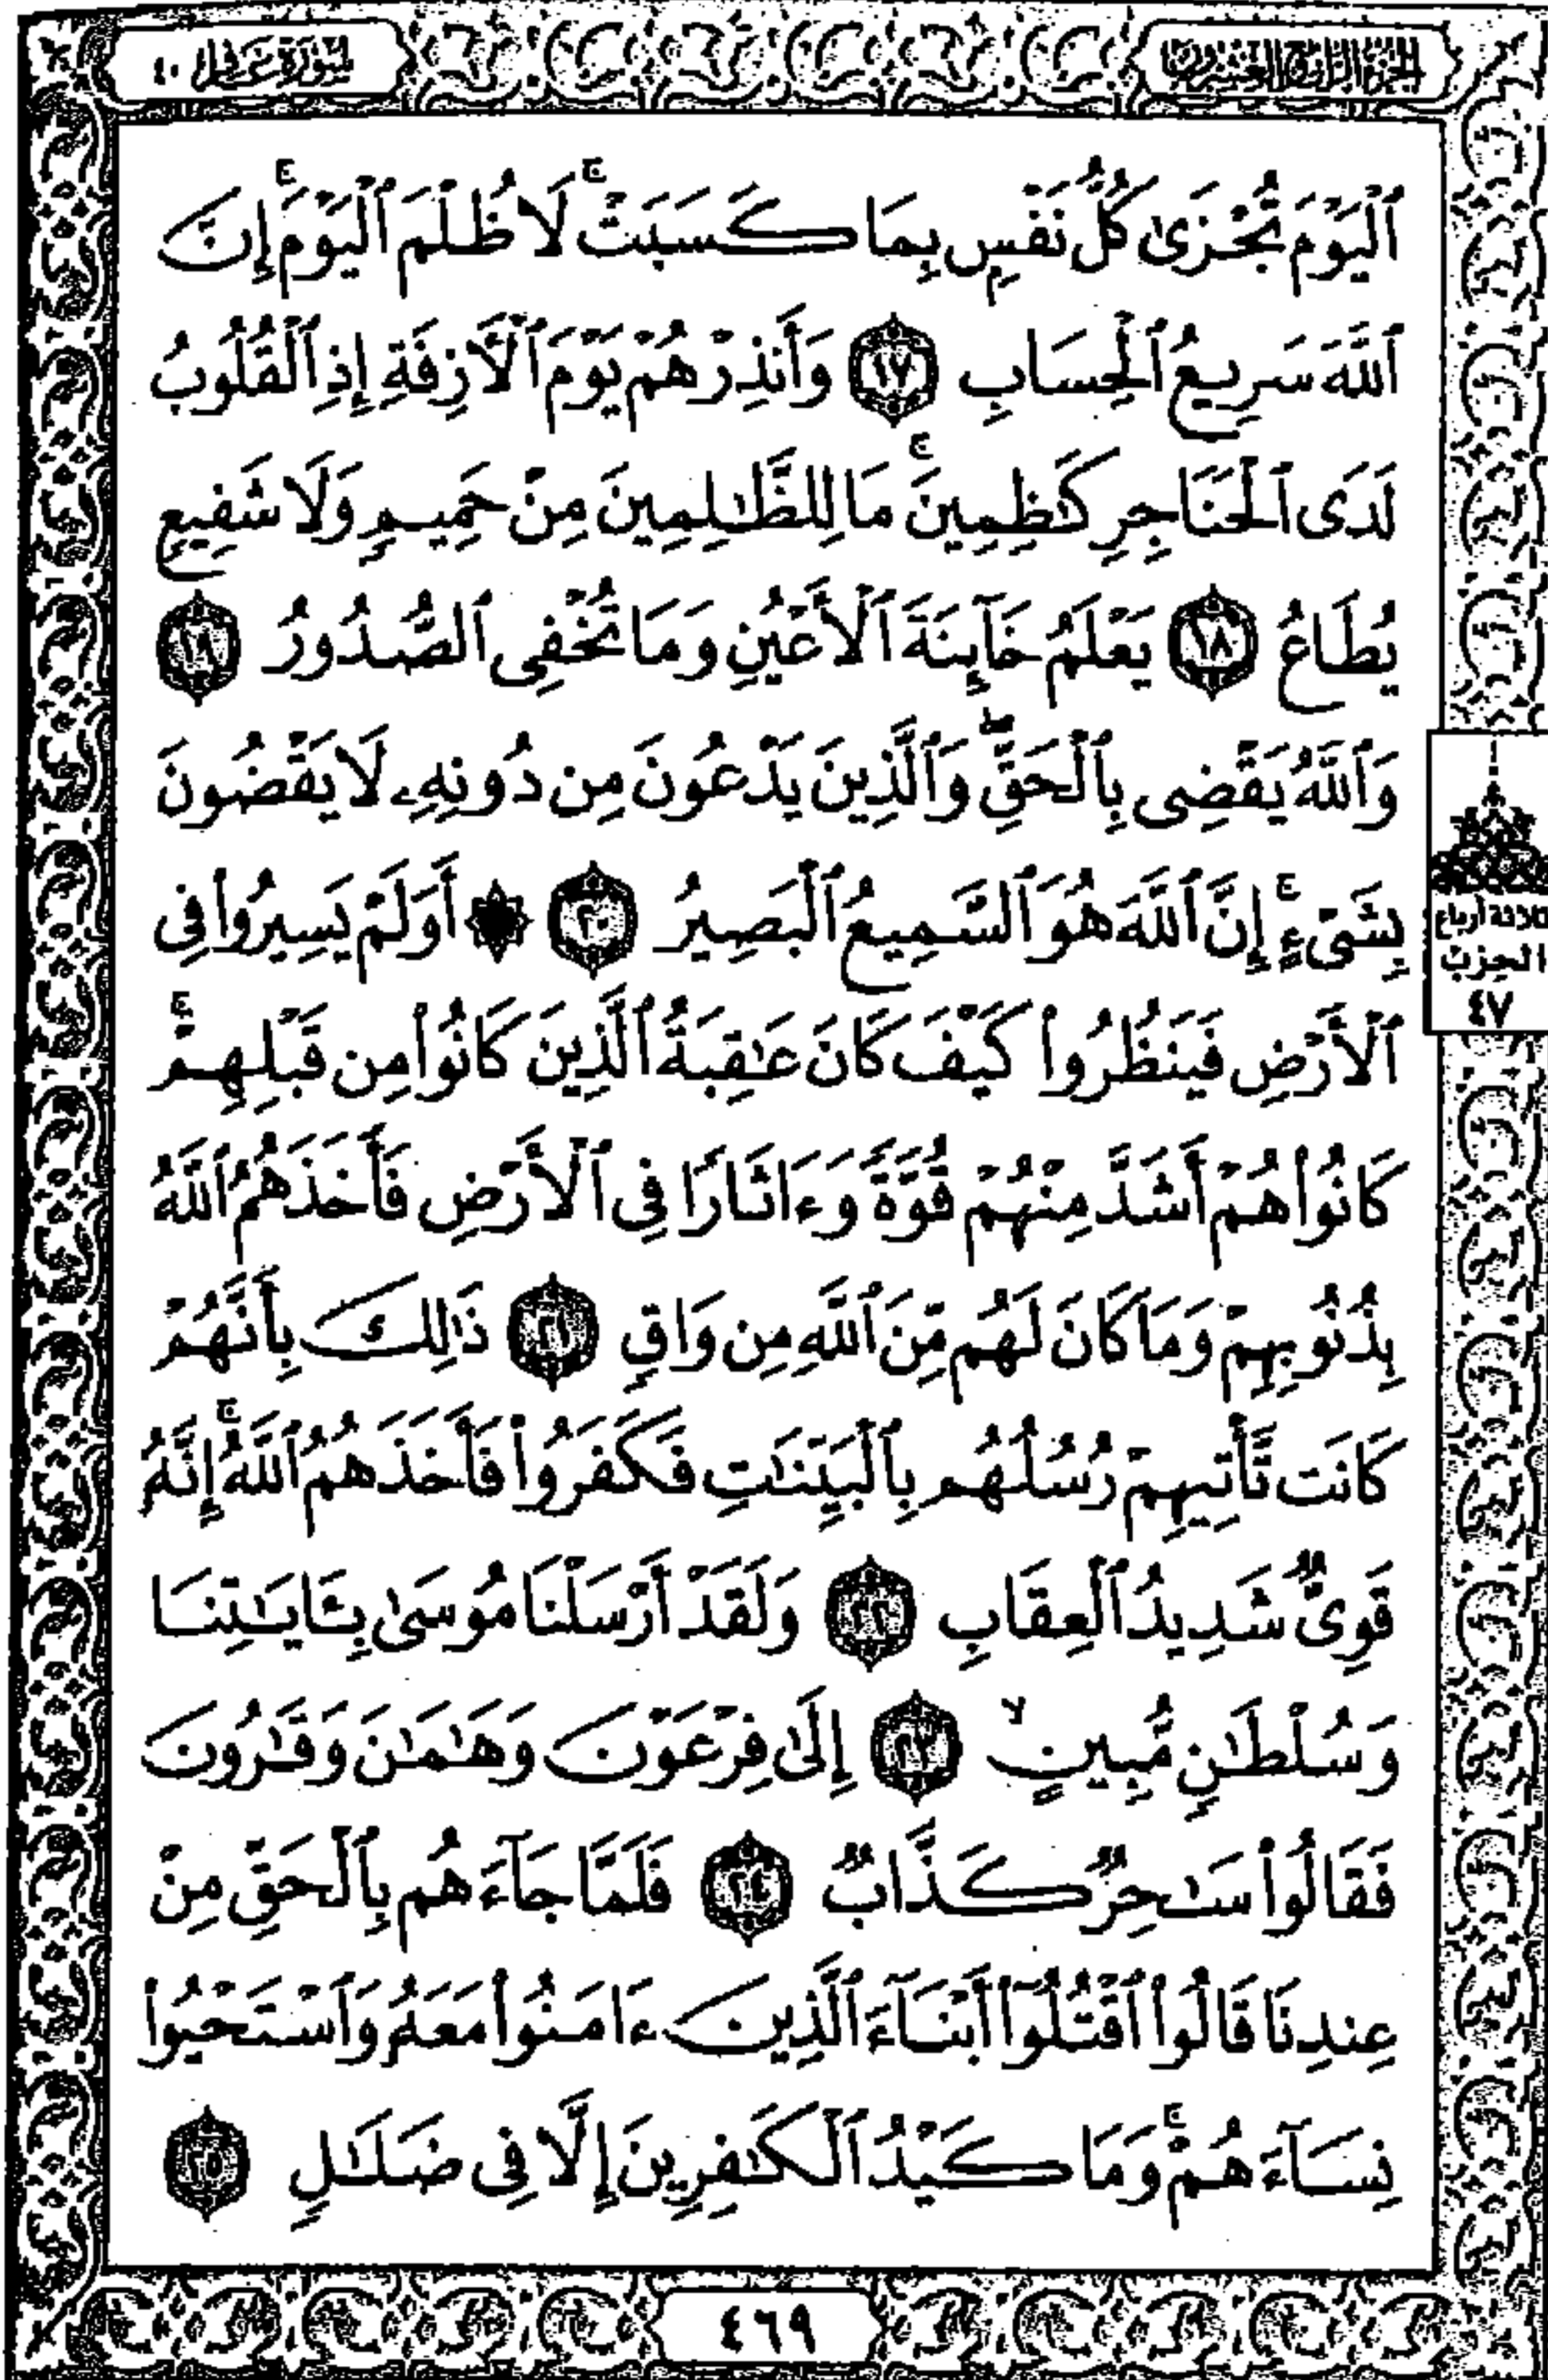 الجزء الرابع والعشرون
سورة غافر ٤٠
ٱلْيَوْمَ تُجْزَىٰ كُلُّ نَفْسٍۭ بِمَا كَسَبَتْ ۚ لَا ظُلْمَ ٱلْيَوْمَ ۚ إِنَّ
ٱللَّهَ سَرِيعُ ٱلْحِسَابِ ١٧ وَأَنذِرْهُمْ يَوْمَ ٱلْأَزِفَةِ إِذِ ٱلْقُلُوبُ
لَدَى ٱلْحَنَاجِرِ كَٰظِمِينَ ۚ مَا لِلظَّٰلِمِينَ مِنْ حَمِيمٍ وَلَا شَفِيعٍ
يُطَاعُ ١٨ يَعْلَمُ خَآئِنَةَ ٱلْأَعْيُنِ وَمَا تُخْفِى ٱلصُّدُورُ ١٩
وَٱللَّهُ يَقْضِى بِٱلْحَقِّ ۖ وَٱلَّذِينَ يَدْعُونَ مِن دُونِهِۦ لَا يَقْضُونَ
بِشَىْءٍ ۗ إِنَّ ٱللَّهَ هُوَ ٱلسَّمِيعُ ٱلْبَصِيرُ ٢٠ ۞ أَوَلَمْ يَسِيرُوا۟ فِى
ثلاثة أرباع
الحزب
٤٧
ٱلْأَرْضِ فَيَنظُرُوا۟ كَيْفَ كَانَ عَٰقِبَةُ ٱلَّذِينَ كَانُوا۟ مِن قَبْلِهِمْ ۚ
كَانُوا۟ هُمْ أَشَدَّ مِنْهُمْ قُوَّةً وَءَاثَارًا فِى ٱلْأَرْضِ فَأَخَذَهُمُ ٱللَّهُ
بِذُنُوبِهِمْ وَمَا كَانَ لَهُم مِّنَ ٱللَّهِ مِن وَاقٍ ٢١ ذَٰلِكَ بِأَنَّهُمْ
كَانَت تَّأْتِيهِمْ رُسُلُهُم بِٱلْبَيِّنَٰتِ فَكَفَرُوا۟ فَأَخَذَهُمُ ٱللَّهُ ۚ إِنَّهُۥ
قَوِىٌّ شَدِيدُ ٱلْعِقَابِ ٢٢ وَلَقَدْ أَرْسَلْنَا مُوسَىٰ بِـَٔايَٰتِنَا
وَسُلْطَٰنٍ مُّبِينٍ ۙ ٢٣ إِلَىٰ فِرْعَوْنَ وَهَٰمَٰنَ وَقَٰرُونَ
فَقَالُوا۟ سَٰحِرٌ كَذَّابٌ ٢٤ فَلَمَّا جَآءَهُم بِٱلْحَقِّ مِنْ
عِندِنَا قَالُوا۟ ٱقْتُلُوٓا۟ أَبْنَآءَ ٱلَّذِينَ ءَامَنُوا۟ مَعَهُۥ وَٱسْتَحْيُوا۟
نِسَآءَهُمْ ۚ وَمَا كَيْدُ ٱلْكَٰفِرِينَ إِلَّا فِى ضَلَٰلٍ ٢٥
٤٦٩